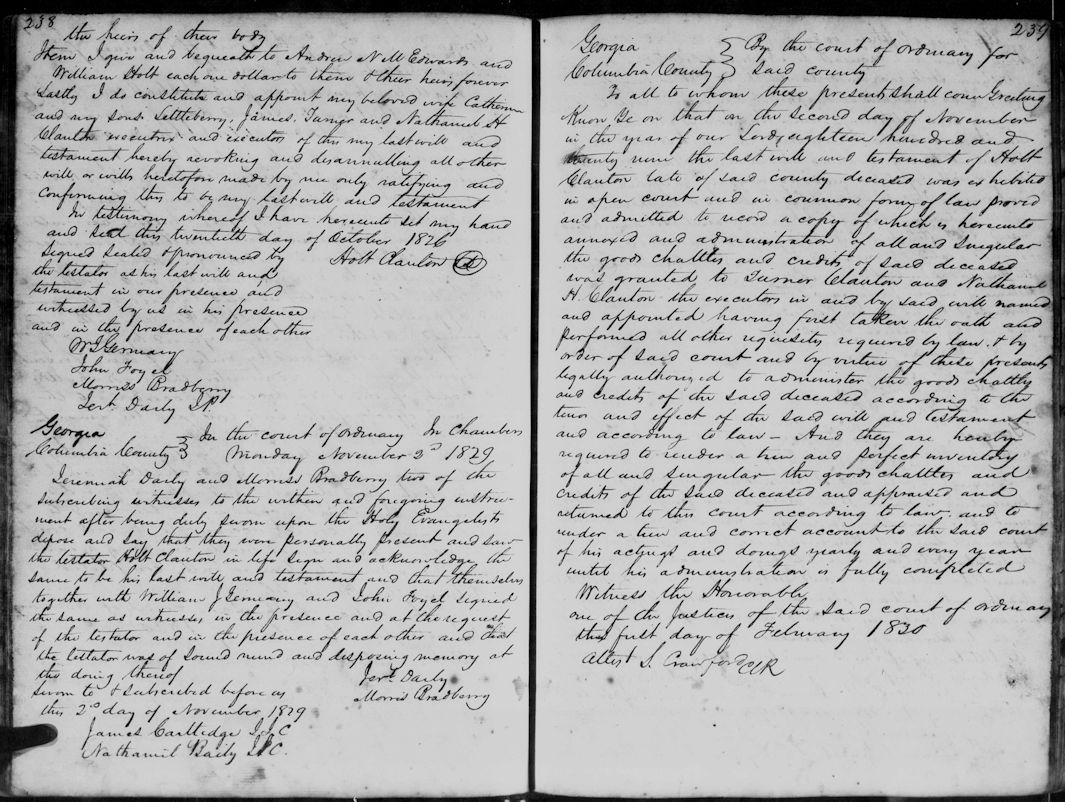 238
the heirs of their body
Item I give and bequeath to Andrew N M Edwards and
William Holt each one dollar to them & their heirs forever
Lastly I do constitute and appoint my beloved wife Catherine
and my sons Littleberry, James, Turner and Nathaniel H
Clanton executrix and executors of this my last will and
testament hereby revoking and disannulling all other
will or wills heretofore made by me only ratifying and
confirming this to be my last will and testament
In testimony whereof I have hereunto set my hand
and seal this twentieth day of October 1826
Signed sealed & pronounced by Holt Clanton
the testator as his last will and
testament in our presence and
witnessed by us in his presence
and in the presence of each other
Wm J Germany
John Foyel
Morriss Bradberry
Jerh Daily J.P.
Georgia
Columbia County } In the court of ordinary In Chambers
Monday November 2d 1829
Jeremiah Daily and Morriss Bradberry two of the
subscribing witnesses to the within and foregoing instru-
ment after being duly sworn upon the Holy Evangelists
depose and say that they were personally present and saw
the testator Holt Clanton in life sign and acknowledge the
same to be his last will and testament and that themselves
together with William J Germany and John Foyel signed
the same as witnesses in the presence and at the request
of the testator and in the presence of each other and that
the testator was of sound mind and disposing memory at
the doing thereof
Jerh Daily
sworn to & subscribed before us
Morris Bradberry
this 2d day of November 1829
James Cartledge J.I.C
Nathaniel Baily J.I.C.
239
Georgia
Columbia County } By the court of ordinary for
said county
To all to whom these presents shall come Greeting
Know Ye on that on the second day of November
in the year of our Lord, eighteen hundred and
twenty nine the last will and testament of Holt
Clanton late of said county deceased was exhibited
in open court and in common form of law proved
and admitted to record a copy of which is hereunto
annexed and administration of all and singular
the goods chattles and credits of said deceased
was granted to Turner Clanton and Nathaniel
H. Clanton the executors in and by said will named
and appointed having first taken the oath and
performed all other requisites required by law & by
order of said court and by virtue of these presents
legally authorized to administer the goods chattles
and credits of the said deceased according to the
tenor and effect of the said will and testament
and according to law - And they are hereby
required to render a true and perfect inventory
of all and singular the goods chattles and
credits of the said deceased and appraised and
returned to this court according to law. and to
render a true and correct account to the said court
of his actings and doings yearly and every year
until his administration is fully completed
Witness the Honorable
one of the Justices of the said court of ordinary
this first day of February 1830
Attest S. Crawford Clk